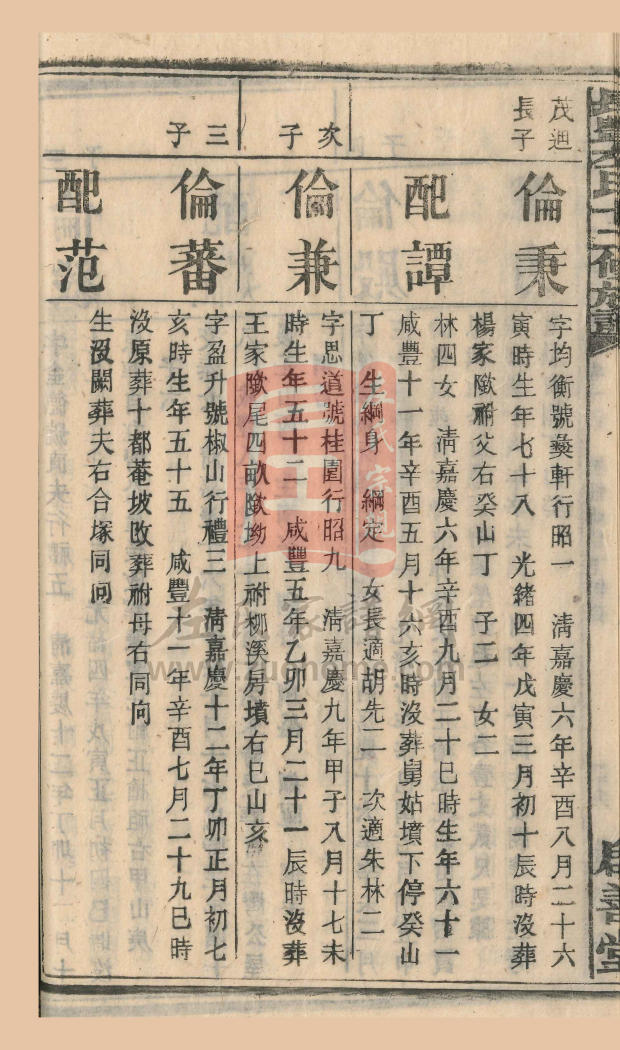 茂廸
長子
倫秉
字均衡號彜軒行昭一　淸嘉慶六年辛酉八月二十六
寅時生年七十八　光緒四年戊寅三月初十辰時沒葬
楊家隞祔父右癸山丁　子二　女二
配譚
林四女　淸嘉慶六年辛酉九月二十巳時生年六十一
咸豐十一年辛酉五月十六亥時沒葬舅姑墳下停癸山
丁　生綱身　綱定　女長適胡先二　次適朱林二
次子
倫兼
字思道號桂園行昭九　淸嘉慶九年甲子八月十七未
時生年五十二　咸豐五年乙卯三月二十一辰時沒葬
王家隞尾四畝隞坳上祔柳溪房墳右巳山亥
三子
倫蕃
字盈升號椒山行禮三　淸嘉慶十二年丁卯正月初七
亥時生年五十五　咸豐十一年辛酉七月二十九巳時
沒原葬十都菴坡改葬祔母右同向
配范
生沒闕葬夫右合塚同向
善堂
www.zuqhome.com